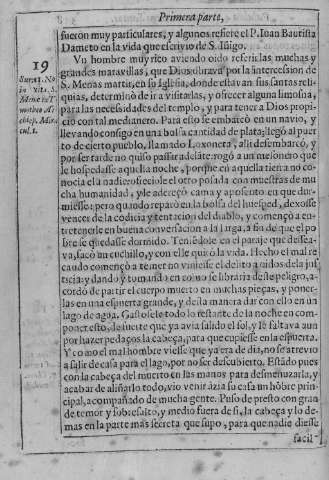 Primera parte,
fueron muy particulares, y algunos refiere el P. Ioan Bautista
Dameto en la vida que escrivio de S. Iñigo.
19
Vn hombre muy rico aviendo oido referir las muchas y
grandes maravillas, que Dios obrava por la intercession de
S. Menas martir, en su Iglesia, donde estavan sus santas reli-
quias, determinò de ir a visitarlas, y ofrecer alguna limosna,
para las necesidades del templo, y para tener a Dios propi-
cio con tal medianero. Para esto se embarcò en un navio, y
llevando consigo en una bolsa cantidad de plata; llegò al puer
to de cierto pueblo, llamado Loxoneta, alli desembarcò, y
por ser tarde no quiso passar adelãte: rogò a un mesonero que
le hospedasse aquella noche, porque en aquella tierra no co-
nocia el a nadie: ofreciole el otro posada con muestras de mu
cha humanidad, y le adereçò cama y aposento en que dur-
miesse: pero quando reparò en la bolsa del huesped, dexosse
vencer de la codicia y tentacion del diablo, y començò a en-
tretenerle en buena conversacion a la larga, a fin de que el po
bre se quedasse dormido. Teniẽdole en el paraje que dessea-
va, sacò un cuchillo, y con el le quitò la vida. Hecho el mal re
caudo començò a temer no viniesse el delito a oidos de la jus
ticia; y dando y tomando en como se libraria deste peligro, a-
cordò de partir el cuerpo muerto en muchas pieças, y poner-
las en una espuerta grande, y desta manera dar con ello en un
lago de agua. Gastosele todo lo restante de la noche en com-
poner esto, de suerte que ya avia salido el sol, y le faltava aun
por hazer pedaços la cabeça, para que cupiesse en la espuerta.
Y como el mal hombre viesse que ya era de dia, no se atrevio
a salir de casa para el lago, por no ser descubierto. Estãdo pues
con la cabeça del muerto en las manos para desmenuzarla, y
acabar de aliñarlo todo, vio venir àzia su casa un hõbre prin-
cipal, acompañado de mucha gente. Puso de presto con gran
de temor y sobresalto, y medio fuera de si, la cabeça y lo de-
mas en la parte mas secreta que supo, para que nadie diesse
facil-